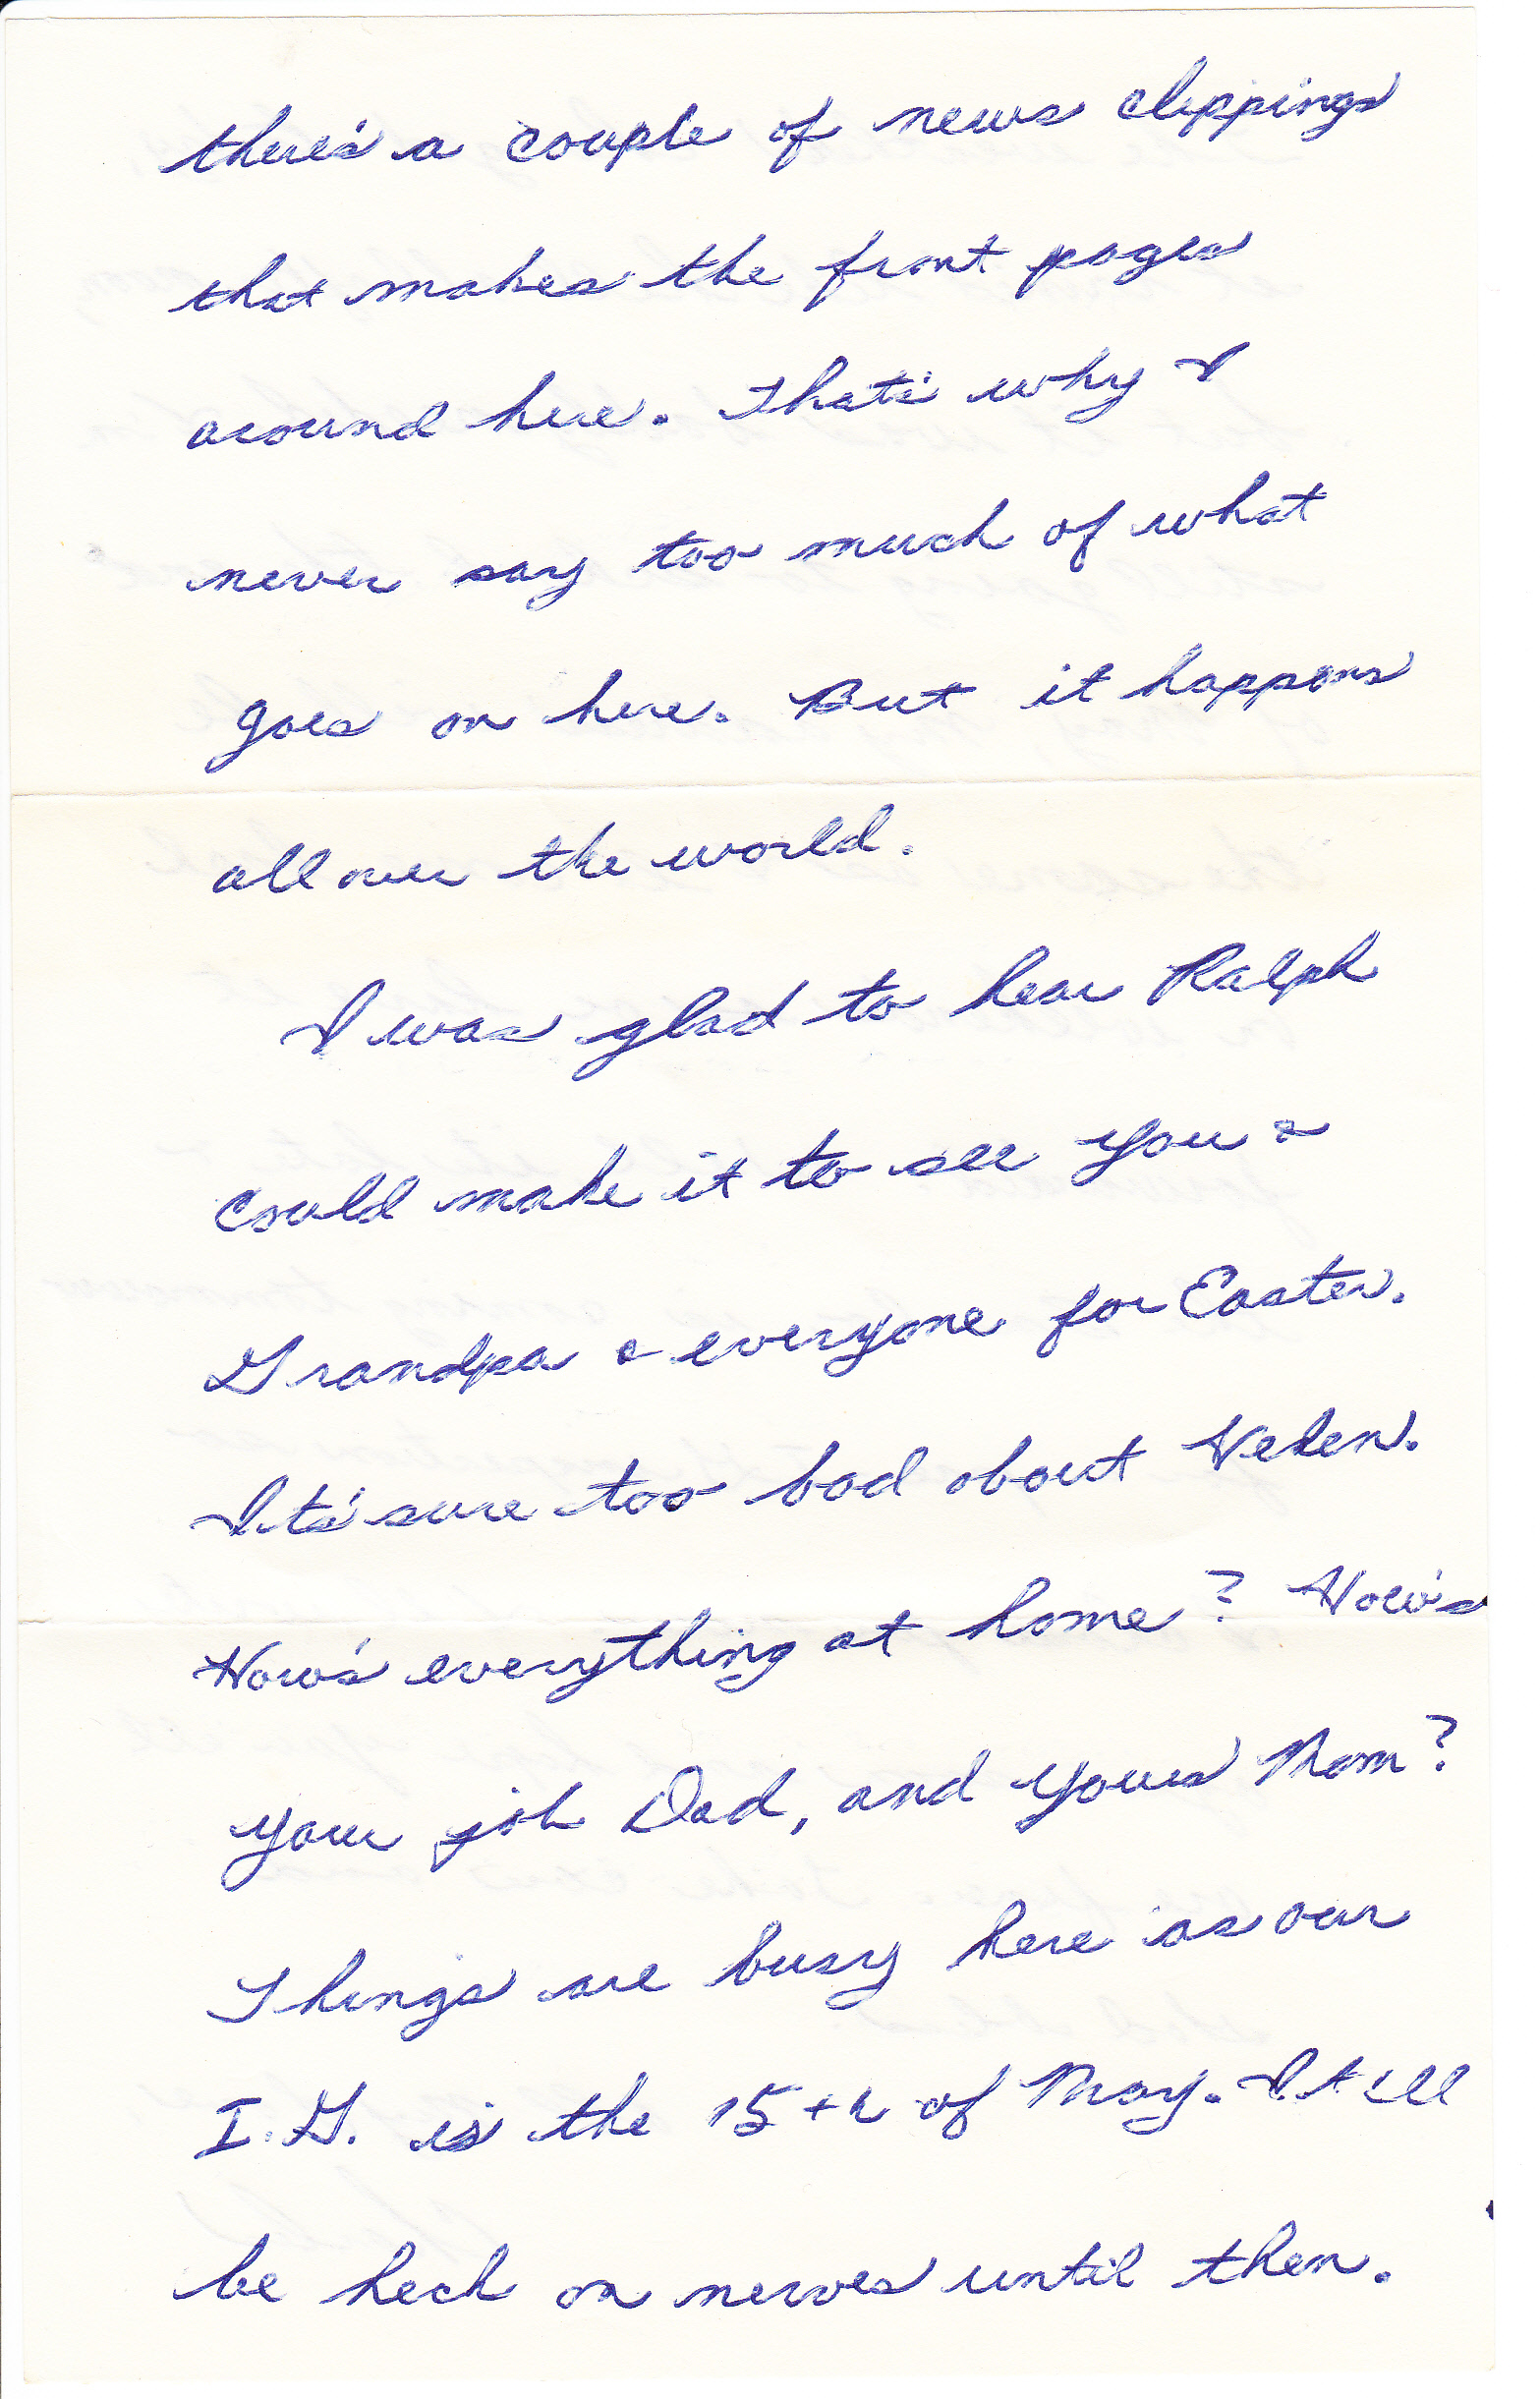 there's a couple of news clippings
that makes the front pages
around here. That's why I
never say too much of what
goes on here. But it happens
all over the world.
I was glad to hear Ralph
could make it to see you &
Grandpa & everyone for Easter.
It's sure too bad about Helen.
How's everything at home? How's
your job Dad, and yours Mom?
Things are busy here as our
I.G. is the 15th of May. It'll
be heck on nerves until then.